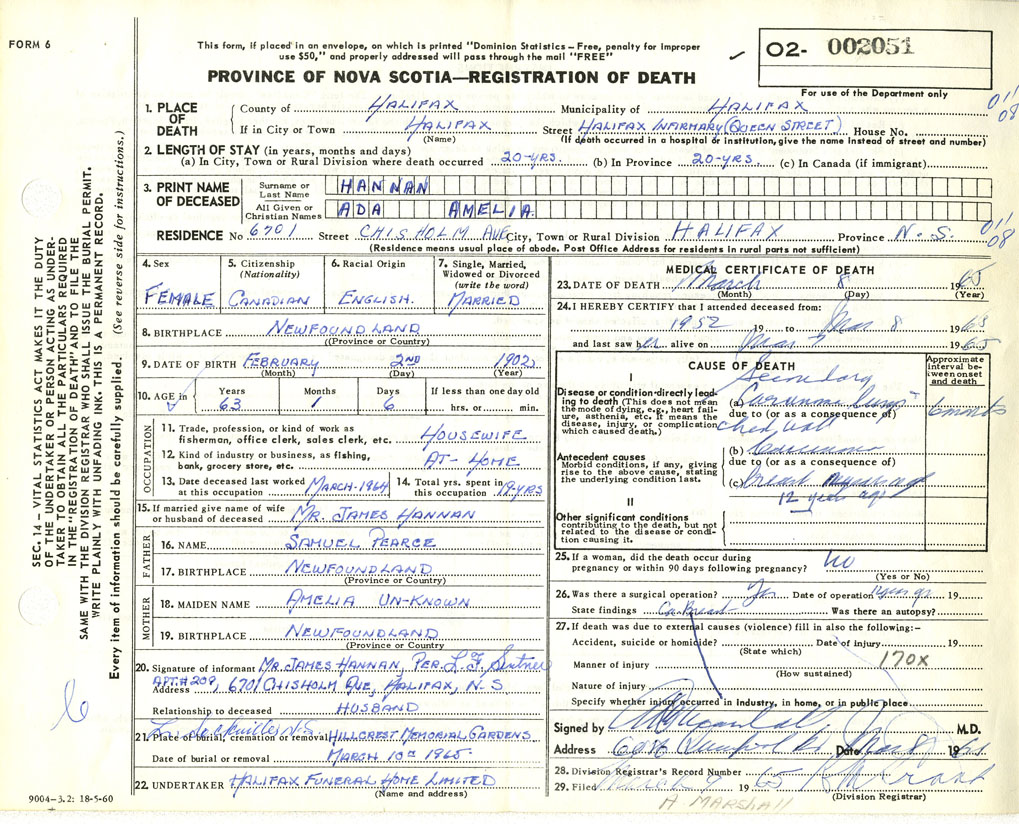 FORM 6
This form, if placed in an envelope, on which is printed "Dominion Statistics – Free, penalty for improper
use $50," and properly addressed will pass through the mail "FREE"
O2- 002051
For use of the Department only
PROVINCE OF NOVA SCOTIA—REGISTRATION OF DEATH
SEC. 14 – VITAL STATISTICS ACT MAKES IT THE DUTY
OF THE UNDERTAKER OR PERSON ACTING AS UNDER-
TAKER TO OBTAIN ALL THE PARTICULARS REQUIRED
IN THE "REGISTRATION OF DEATH" AND TO FILE THE
SAME WITH THE DIVISION REGISTRAR WHO SHALL ISSUE THE BURIAL PERMIT.
WRITE PLAINLY WITH UNFADING INK. THIS IS A PERMANENT RECORD.
Every item of information should be carefully supplied. (See reverse side for instructions.)
1. PLACE OF DEATH
County of HALIFAX Municipality of HALIFAX
If in City or Town HALIFAX Street HALIFAX INFIRMARY (QUEEN STREET) House No.
(Name) (If death occurred in a hospital or institution, give the name instead of street and number)
01'
08
2. LENGTH OF STAY (in years, months and days)
(a) In City, Town or Rural Division where death occurred 20-YRS. (b) In Province 20-YRS. (c) In Canada (if immigrant)
3. PRINT NAME OF DECEASED
Surname or Last Name HANNAN
All Given or Christian Names ADA AMELIA
RESIDENCE No 6701 Street CHISHOLM AVE City, Town or Rural Division HALIFAX Province N.S.
(Residence means usual place of abode. Post Office Address for residents in rural parts not sufficient)
01'
08
4. Sex FEMALE
5. Citizenship (Nationality) CANADIAN
6. Racial Origin ENGLISH.
7. Single, Married, Widowed or Divorced (write the word) MARRIED
8. BIRTHPLACE NEWFOUNDLAND
(Province or Country)
9. DATE OF BIRTH FEBRUARY 2ND 1902
(Month) (Day) (Year)
10. AGE in Years 63 Months 1 Days 6 If less than one day old hrs. or min.
OCCUPATION
11. Trade, profession, or kind of work as fisherman, office clerk, sales clerk, etc. HOUSEWIFE
12. Kind of industry or business, as fishing, bank, grocery store, etc. AT-HOME
13. Date deceased last worked at this occupation MARCH-1964
14. Total yrs. spent in this occupation 19-YRS
15. If married give name of wife or husband of deceased MR. JAMES HANNAN
FATHER
16. NAME SAMUEL PEARCE
17. BIRTHPLACE NEWFOUNDLAND
(Province or Country)
MOTHER
18. MAIDEN NAME AMELIA UN-KNOWN
19. BIRTHPLACE NEWFOUNDLAND
(Province or Country
20. Signature of informant MR. JAMES HANNAN, PER. L.F.
Address APT.#209, 6701 CHISHOLM AVE, HALIFAX, N.S
Relationship to deceased HUSBAND
L. Sackville N.S.
21. Place of burial, cremation or removal HILLCREST MEMORIAL GARDENS
Date of burial or removal MARCH 10TH 1965
22. UNDERTAKER HALIFAX FUNERAL HOME LIMITED
(Name and address)
9004-3.2: 18-5-60
6
MEDICAL CERTIFICATE OF DEATH
23. DATE OF DEATH March 8 1965
(Month) (Day) (Year)
24. I HEREBY CERTIFY that I attended deceased from:
1952 19 to Mar 8 1965
and last saw her alive on Mar 7 1965
CAUSE OF DEATH
Approximate interval between onset and death
I
Disease or condition directly leading to death (This does not mean the mode of dying, e.g., heart failure, asthenia, etc. It means the disease, injury, or complication which caused death.)
Secondary
(a) Carcinoma lungs 6 months
due to (or as a consequence of)
chest wall
Antecedent causes
Morbid conditions, if any, giving rise to the above cause, stating the underlying condition last.
(b) Carcinoma
due to (or as a consequence of)
(c) breast
12 years ago
II
Other significant conditions
contributing to the death, but not related to the disease or condition causing it.
25. If a woman, did the death occur during pregnancy or within 90 days following pregnancy? No
(Yes or No)
26. Was there a surgical operation? Yes Date of operation 12 yrs ago 19
State findings Ca Breast Was there an autopsy?
27. If death was due to external causes (violence) fill in also the following:–
Accident, suicide or homicide? Date of injury 19
(State which)
Manner of injury 170X
(How sustained)
Nature of injury
Specify whether injury occurred in industry, in home, or in public place
Signed by M.D.
Address Date Mar 8 1965
28. Division Registrar's Record Number
29. Filed March 9 1965
(Division Registrar)
A MARSHALL